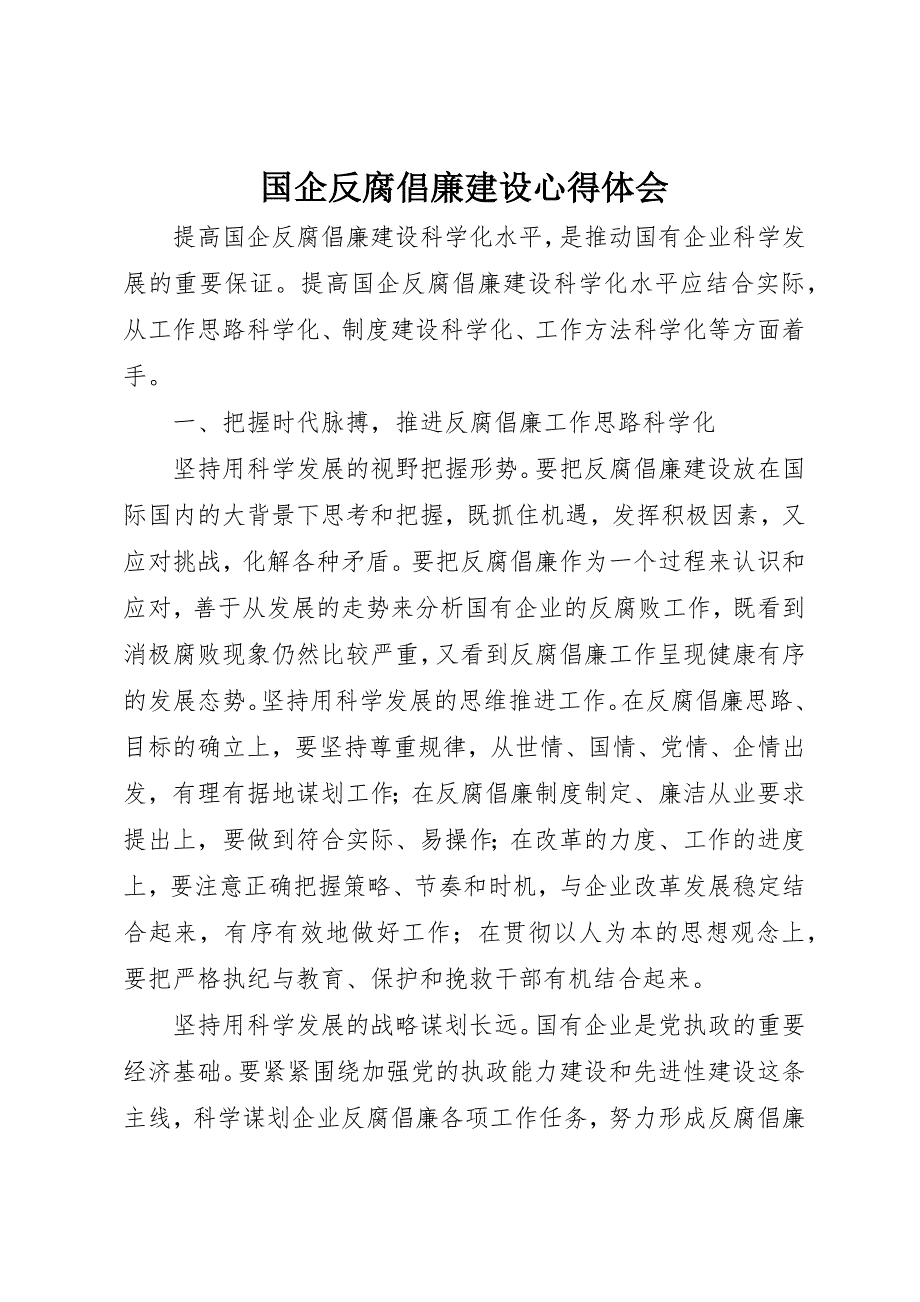 国企反腐倡廉建设心得体会
提高国企反腐倡廉建设科学化水平，是推动国有企业科学发
展的重要保证。提高国企反腐倡廉建设科学化水平应结合实际，
从工作思路科学化、制度建设科学化、工作方法科学化等方面着
手。
一、把握时代脉搏，推进反腐倡廉工作思路科学化
坚持用科学发展的视野把握形势。要把反腐倡廉建设放在国
际国内的大背景下思考和把握，既抓住机遇，发挥积极因素，又
应对挑战，化解各种矛盾。要把反腐倡廉作为一个过程来认识和
应对，善于从发展的走势来分析国有企业的反腐败工作，既看到
消极腐败现象仍然比较严重，又看到反腐倡廉工作呈现健康有序
的发展态势。坚持用科学发展的思维推进工作。在反腐倡廉思路、
目标的确立上，要坚持尊重规律，从世情、国情、党情、企情出
发，有理有据地谋划工作；在反腐倡廉制度制定、廉洁从业要求
提出上，要做到符合实际、易操作；在改革的力度、工作的进度
上，要注意正确把握策略、节奏和时机，与企业改革发展稳定结
合起来，有序有效地做好工作；在贯彻以人为本的思想观念上，
要把严格执纪与教育、保护和挽救干部有机结合起来。
坚持用科学发展的战略谋划长远。国有企业是党执政的重要
经济基础。要紧紧围绕加强党的执政能力建设和先进性建设这条
主线，科学谋划企业反腐倡廉各项工作任务，努力形成反腐倡廉